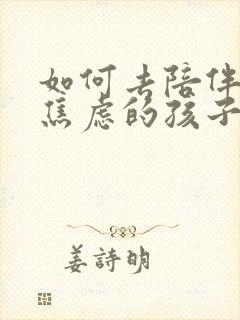 如何去陪伴
焦虑的孩子
姜詩明